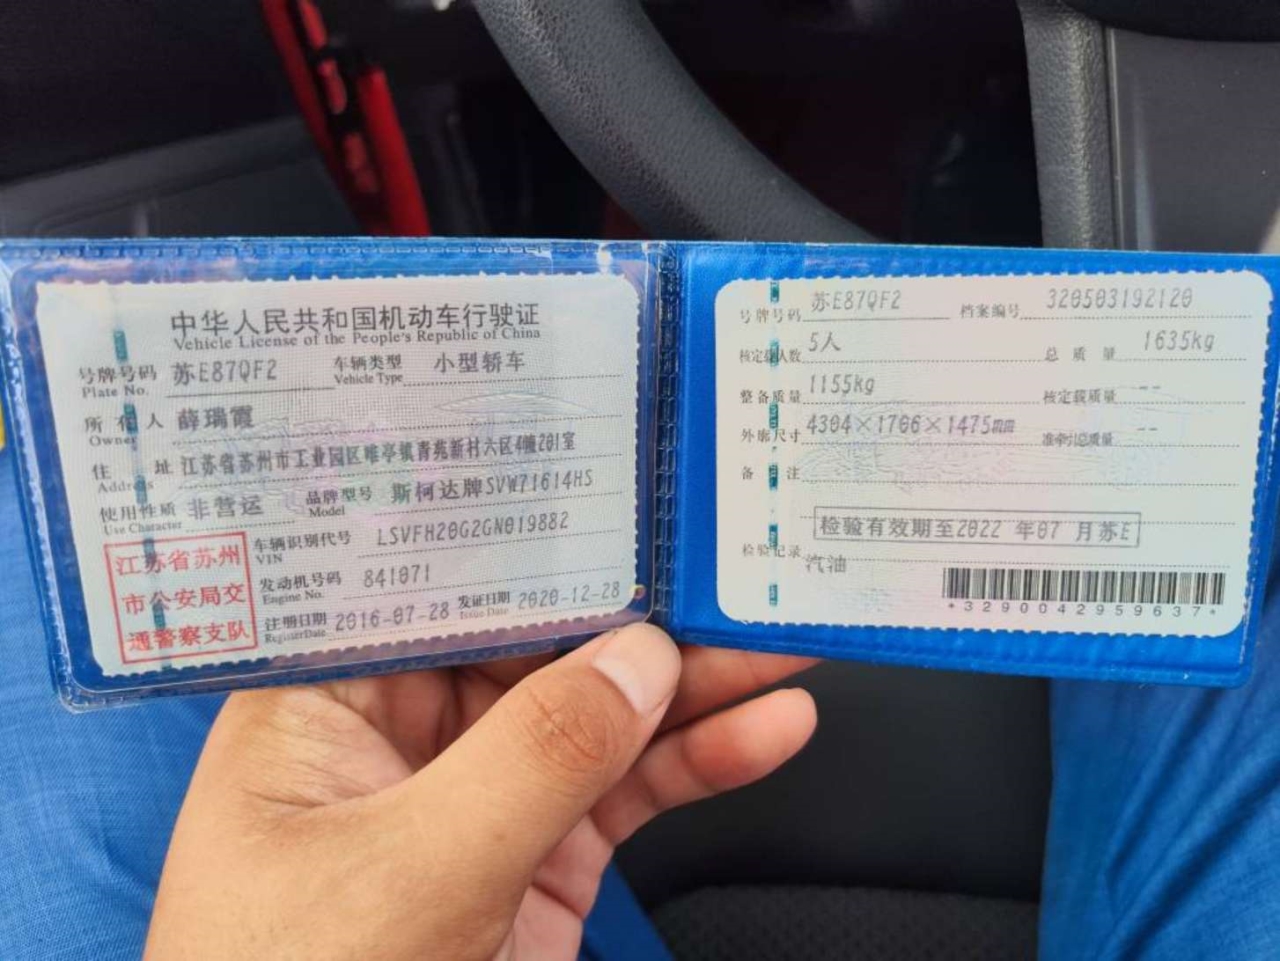 中华人民共和国机动车行驶证
Vehicle License of the People's Republic of China
号牌号码 苏E87QF2 车辆类型 小型轿车
Plate No. Vehicle Type
所有人 薛瑞霞
Owner
住址 江苏省苏州市工业园区唯亭镇青苑新村六区4幢201室
Address
使用性质 非营运 品牌型号 斯柯达牌SVW71614HS
Use Character Model
江苏省苏州
市公安局交
通警察支队
车辆识别代号 LSVFH20G2GN019882
VIN
发动机号码 841071
Engine No.
注册日期 2016-07-28 发证日期 2020-12-28
Register Date Issue Date
号牌号码 苏E87QF2 档案编号 320503192120
核定载人数 5人 总质量 1635kg
整备质量 1155kg 核定载质量 --
外廓尺寸 4304×1706×1475mm 准牵引总质量 --
备注
检验有效期至2022 年07 月苏E
检验记录
汽油
*3290042959637*